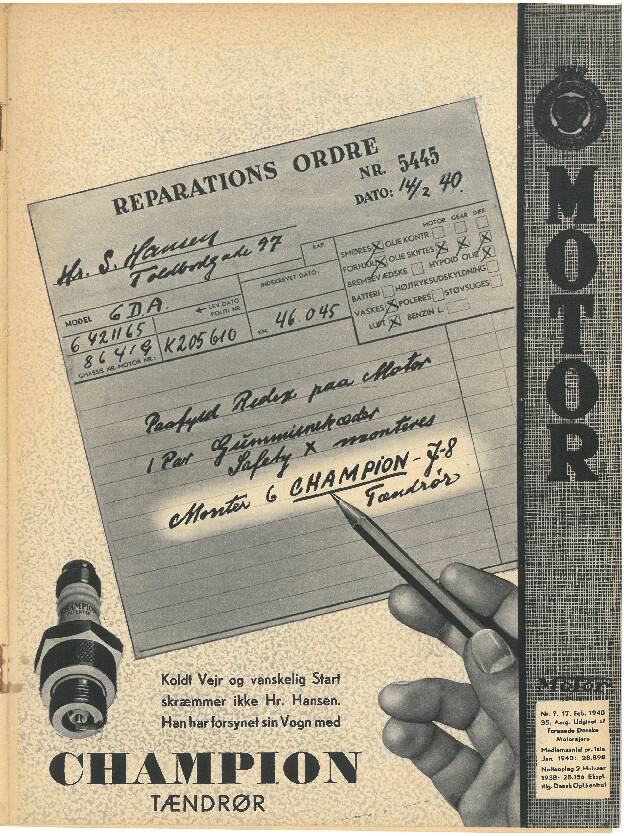 REPARATIONS ORDRE
NR. 5445
DATO: 14/2 40.
Hr. S. Hansen
Toldbodgade 97
MODEL GDA.
6421165
86419
CHASSIS NR.-MOTOR NR.:
← LEV.DATO
POLITI NR.
K205610
INDSKREVET DATO:
KAR.
KM. 46.045
MOTOR GEAR DIFF.
SMØRES X OLIE KONTR.
FORHJUL X OLIE SKIFTES X X X
BREMSEVÆDSKE HYPOID OLIE X
BATTERI HØJTRYKSUDSKYLDNING
VASKES X POLERES STØVSUGES
LUFT X BENZIN L.
Paafyld Redex paa Motor
1 Par Gummisnekæder
Safety X monteres
Monter 6 CHAMPION - J-8
Tændrør
CHAMPION
Koldt Vejr og vanskelig Start
skræmmer ikke Hr. Hansen.
Han har forsynet sin Vogn med
CHAMPION
TÆNDRØR
MOTOR
Motor
Nr. 7. 17. Feb. 1940
35. Aarg. Udgivet af
Forenede Danske
Motorejere
Medlemsantal pr. 1ste
Jan. 1940: 28.898
Nettooplag 2. Halvaar
1938: 28.156 Ekspl.
iflg. Dansk Opl.kontrol